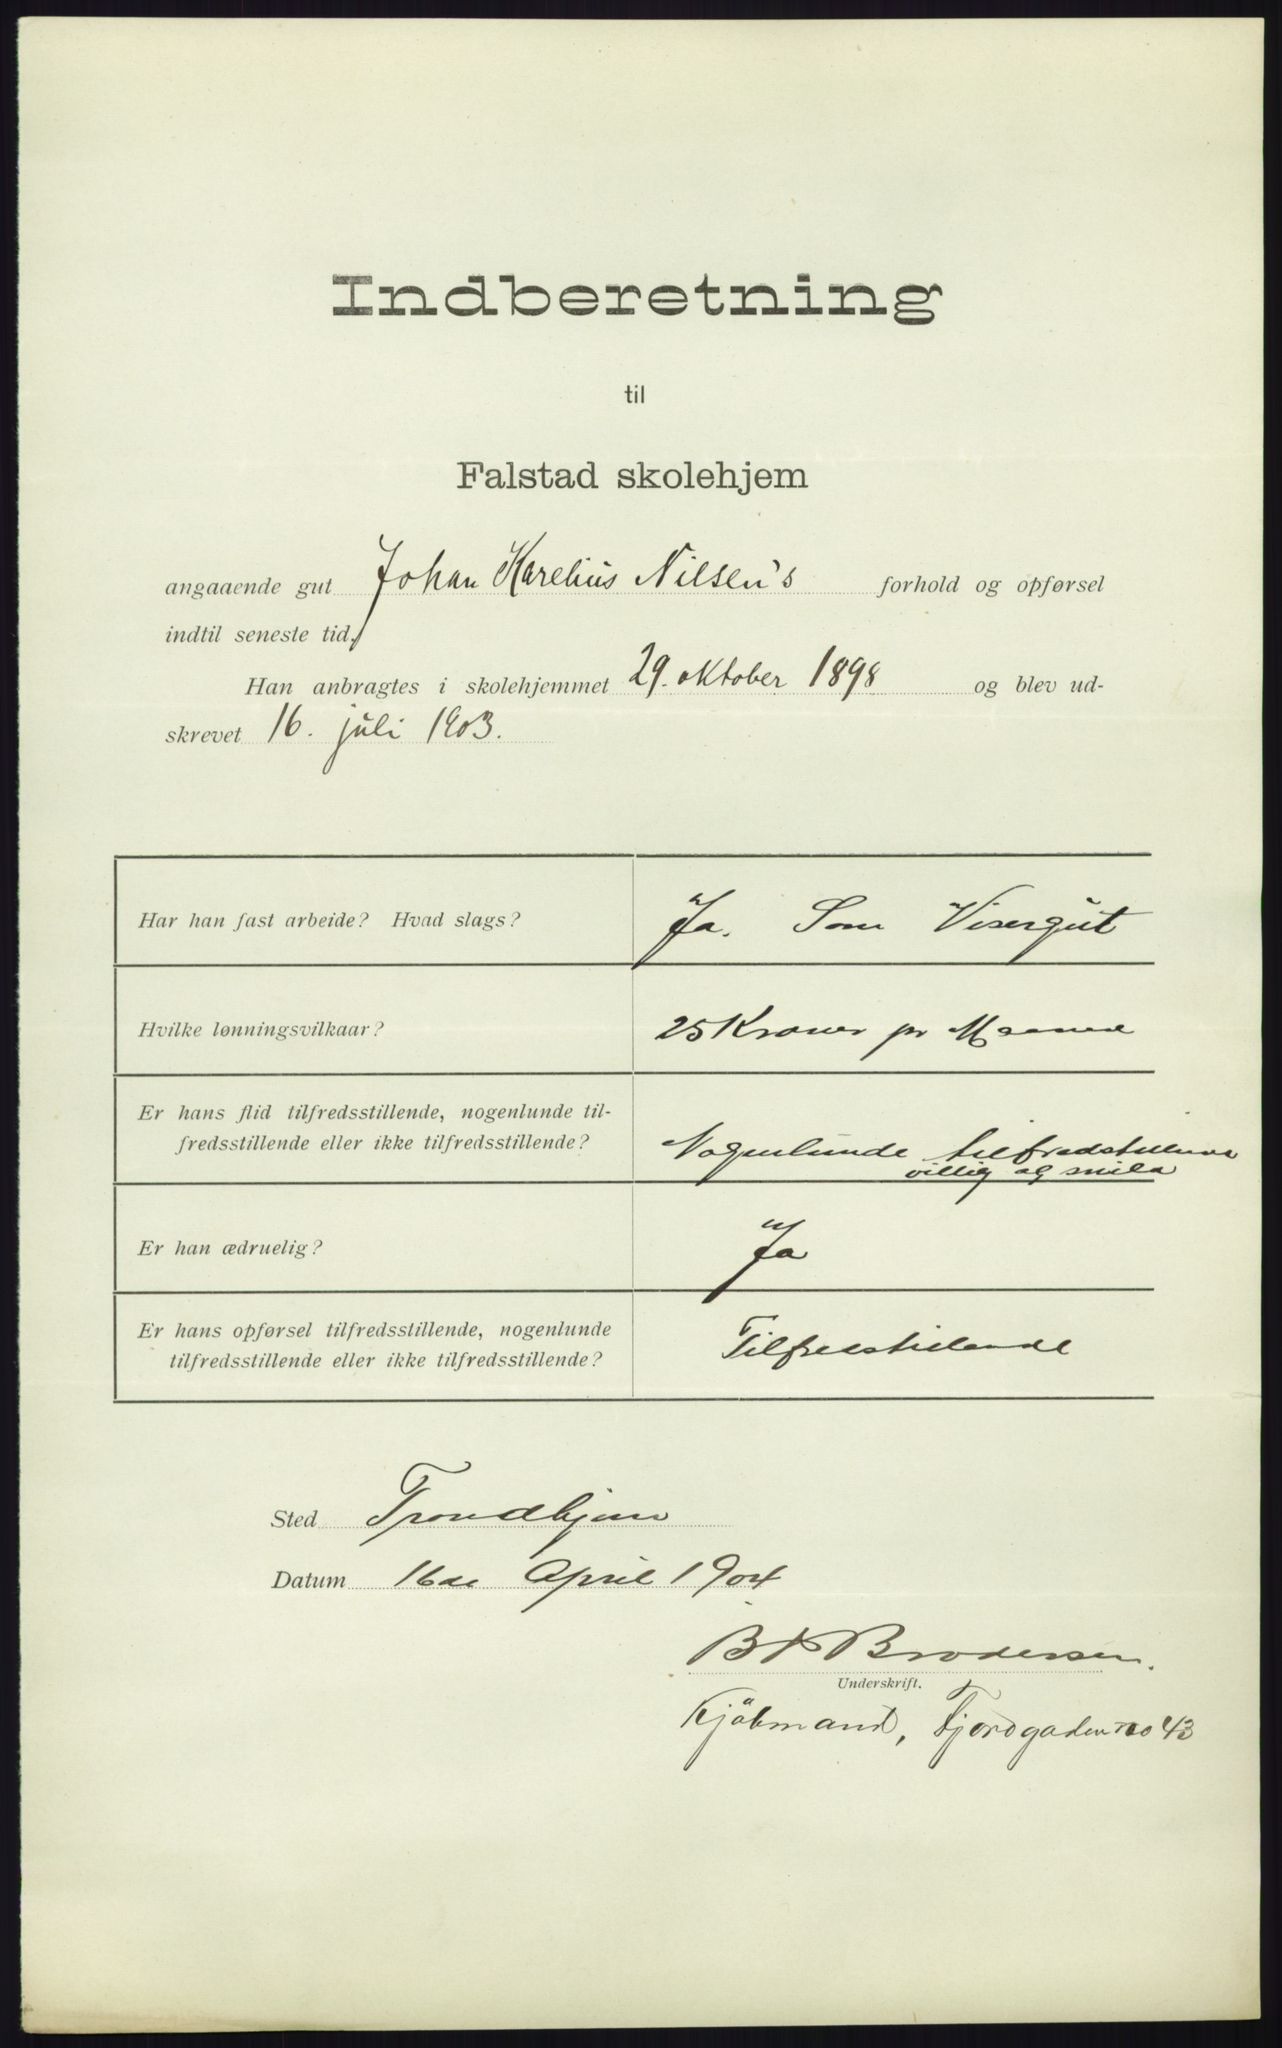 Indberetning
til
Falstad skolehjem
angaaende gut Johan Karelius Nilsen's forhold og opførsel
indtil seneste tid.
Han anbragtes i skolehjemmet 29. oktober 1898 og blev ud-
skrevet 16. juli 1903.
Har han fast arbeide? Hvad slags? Ja. Som Visergut
Hvilke lønningsvilkaar? 25 Kroner pr Maaned
Er hans flid tilfredsstillende, nogenlunde til-
fredsstillende eller ikke tilfredsstillende? Nogenlunde tilfredstillende
villig og snild
Er han ædruelig? Ja
Er hans opførsel tilfredsstillende, nogenlunde
tilfredsstillende eller ikke tilfredsstillende? Tilfredsstillende
Sted Trondhjem
Datum 16de April 1904
Brodersen.
Underskrift.
Kjöbmand, Fjordgaden no 43